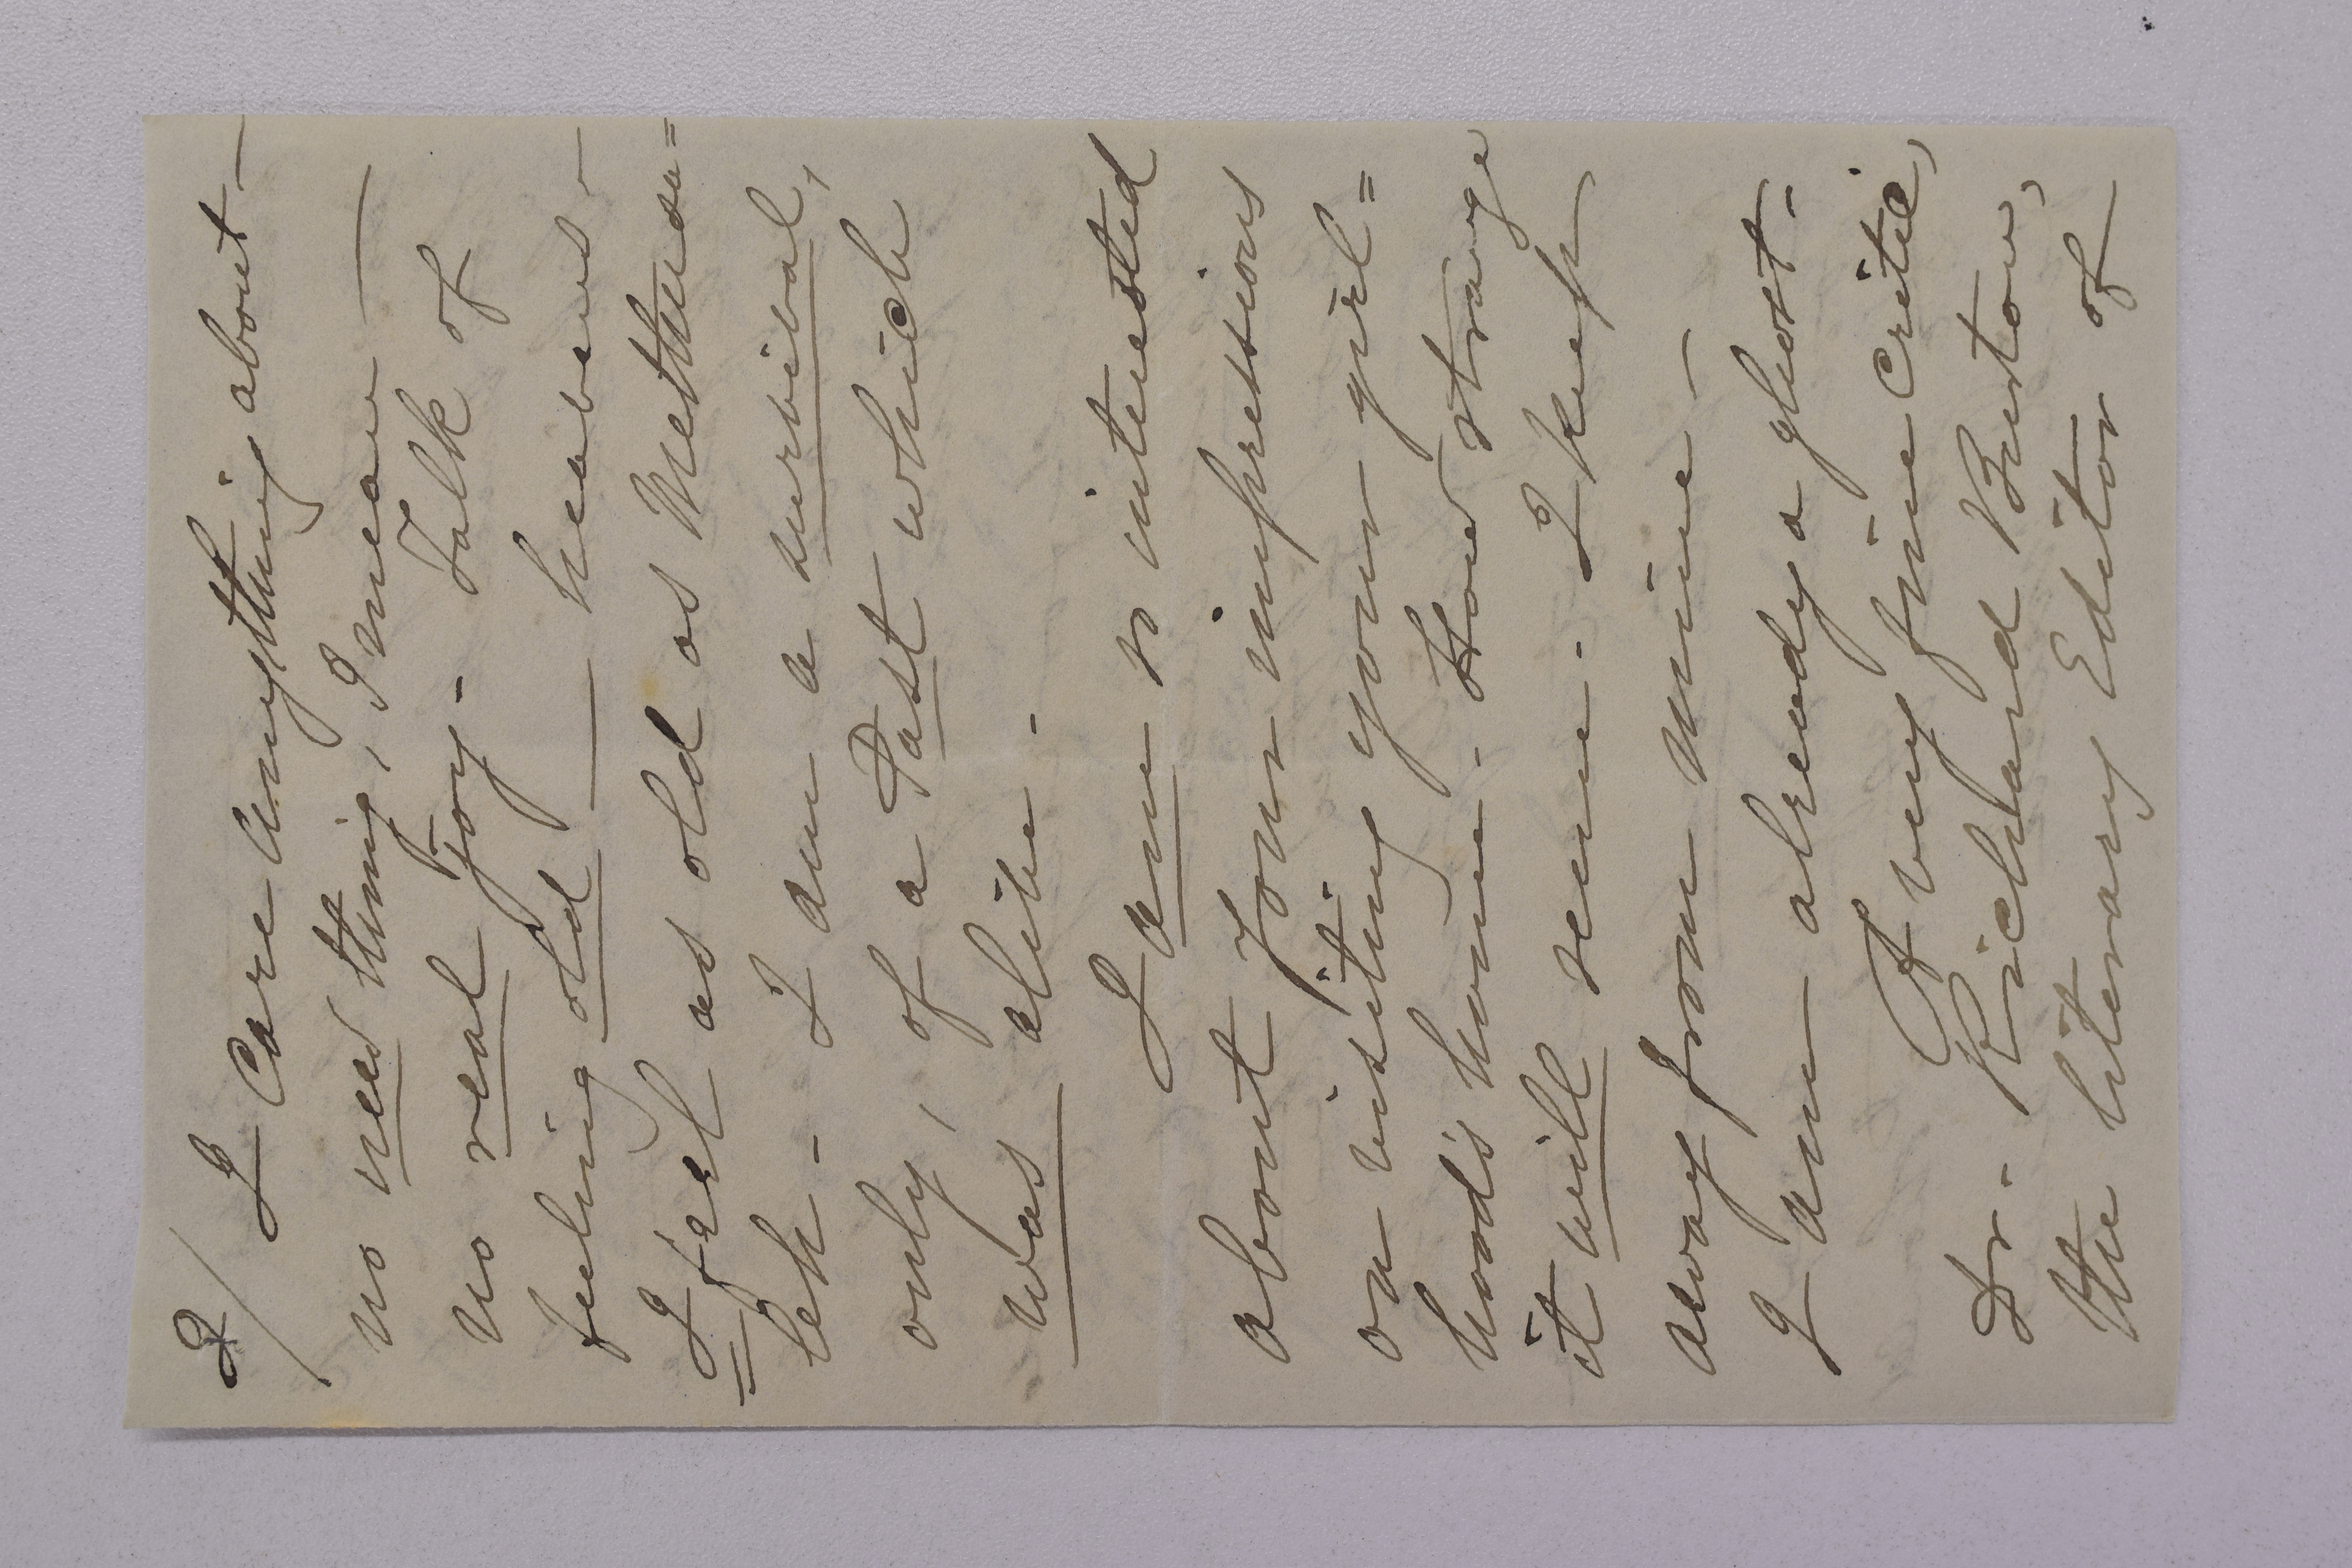 2/ I Care anything about —
no new thing, I mean —
no real joy - Talk of
feeling old — heavens -
I feel as old as Methusa=
leh - I am a survival,
only, of a Past which
was alive -
I am so interested
about your impressions
on visiting your girl=
hood's home - How strange
it will seem - I keep
away from mine -
I am already a ghost -
A very fine Critic,
Dr - Richard Burton,
the literary Editor of